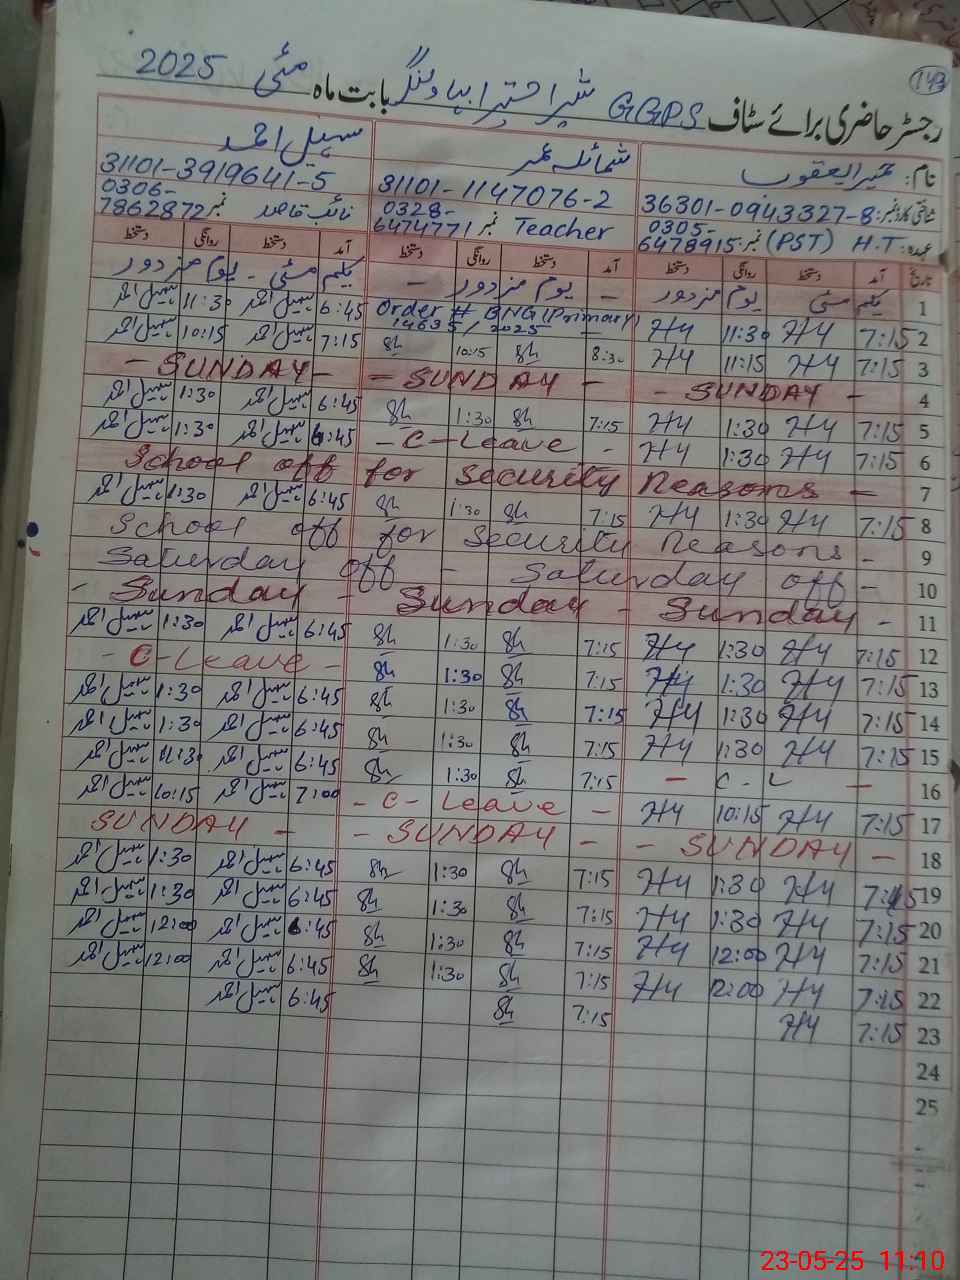 143
رجسٹر حاضری برائے سٹاف GGPS بابت ماہ مئی 2025
نام:
شمائلہ عمر
سہیل احمد
شناختی کارڈ نمبر: 36301-0943327-8
31101-1147076-2
31101-3919641-5
عہدہ: H.T (PST) نمبر: 0305-6478915
Teacher نمبر 0328-6474771
نائب قاصد نمبر 0306-7862872
تاریخ آمد دستخط روانگی دستخط آمد دستخط روانگی دستخط آمد دستخط روانگی دستخط
1 یکم مئی یوم مزدور - یوم مزدور - یکم مئی - یوم مزدور
2 7:15 H4 11:30 H4 Order # BNG (Primary) 14635/2025 6:45 سہیل احمد 11:30 سہیل احمد
3 7:15 H4 11:15 H4 8:30 Sh 10:15 Sh 7:15 سہیل احمد 10:15 سہیل احمد
4 - SUNDAY - - SUNDAY - - SUNDAY -
5 7:15 H4 1:30 H4 7:15 Sh 1:30 Sh 6:45 سہیل احمد 1:30 سہیل احمد
6 7:15 H4 1:30 H4 - C-Leave - 6:45 سہیل احمد 1:30 سہیل احمد
7 School off for Security Reasons -
8 7:15 H4 1:30 H4 7:15 Sh 1:30 Sh 6:45 سہیل احمد 1:30 سہیل احمد
9 School off for Security Reasons -
10 Saturday off - Saturday off -
11 - Sunday - Sunday - Sunday -
12 7:15 H4 1:30 H4 7:15 Sh 1:30 Sh 6:45 سہیل احمد 1:30 سہیل احمد
13 7:15 H4 1:30 H4 7:15 Sh 1:30 Sh - C-Leave -
14 7:15 H4 1:30 H4 7:15 Sh 1:30 Sh 6:45 سہیل احمد 1:30 سہیل احمد
15 7:15 H4 1:30 H4 7:15 Sh 1:30 Sh 6:45 سہیل احمد 1:30 سہیل احمد
16 - C-L - 7:15 Sh 1:30 Sh 6:45 سہیل احمد 11:30 سہیل احمد
17 7:15 H4 10:15 H4 - C-Leave - 7:00 سہیل احمد 10:15 سہیل احمد
18 - SUNDAY - - SUNDAY - SUNDAY -
19 7:15 H4 1:30 H4 7:15 Sh 1:30 Sh 6:45 سہیل احمد 1:30 سہیل احمد
20 7:15 H4 1:30 H4 7:15 Sh 1:30 Sh 6:45 سہیل احمد 1:30 سہیل احمد
21 7:15 H4 12:00 H4 7:15 Sh 1:30 Sh 6:45 سہیل احمد 12:00 سہیل احمد
22 7:15 H4 12:00 H4 7:15 Sh 1:30 Sh 6:45 سہیل احمد 12:00 سہیل احمد
23 7:15 H4 7:15 Sh 6:45 سہیل احمد
24
25
23-05-25 11:10